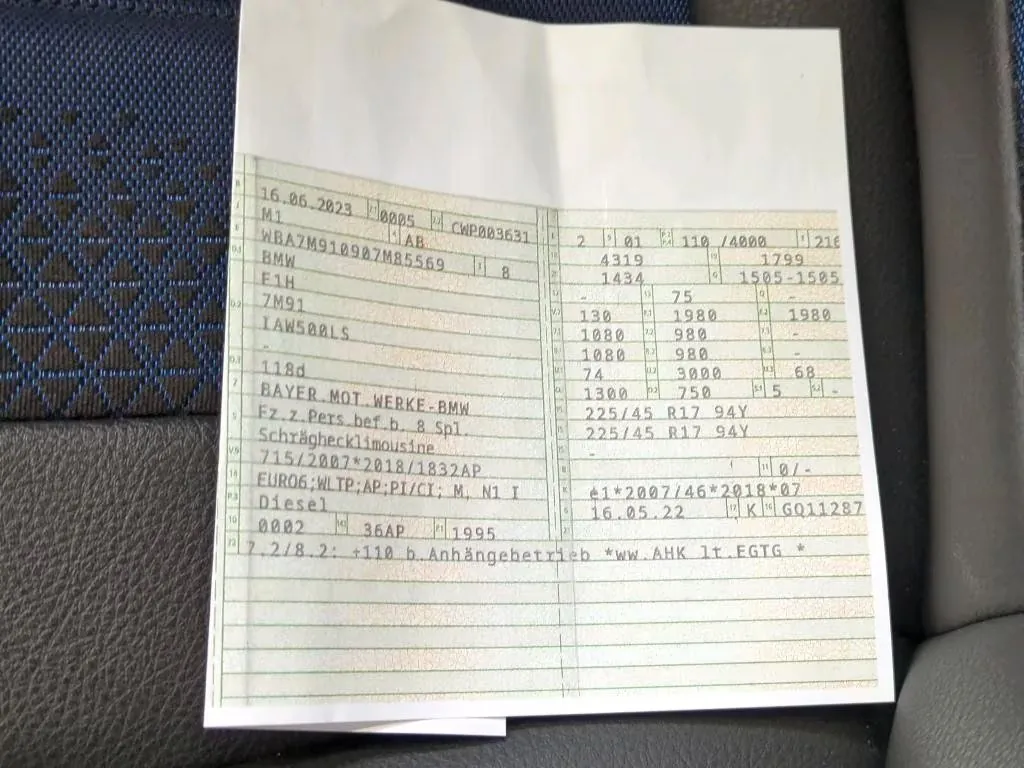 16.06.2023 0005 CWP003631
M1 AB
WBA7M910907M85569 8
BMW
F1H
7M91
IAW500LS
-
118d
BAYER.MOT.WERKE-BMW
Fz.z.Pers.bef.b. 8 Spl.
Schräghecklimousine
715/2007*2018/1832AP
EURO6;WLTP;AP;PI/CI; M, N1 I
Diesel
0002 36AP 1995
7.2/8.2: +110 b.Anhängebetrieb *ww.AHK lt.EGTG *
2 01 110 /4000 216
4319 1799
1434 1505-1505
- 75 -
130 1980 1980
1080 980 -
1080 980 -
74 3000 68
1300 750 5 -
225/45 R17 94Y
225/45 R17 94Y
-
0/-
e1*2007/46*2018*07
16.05.22 K GQ11287